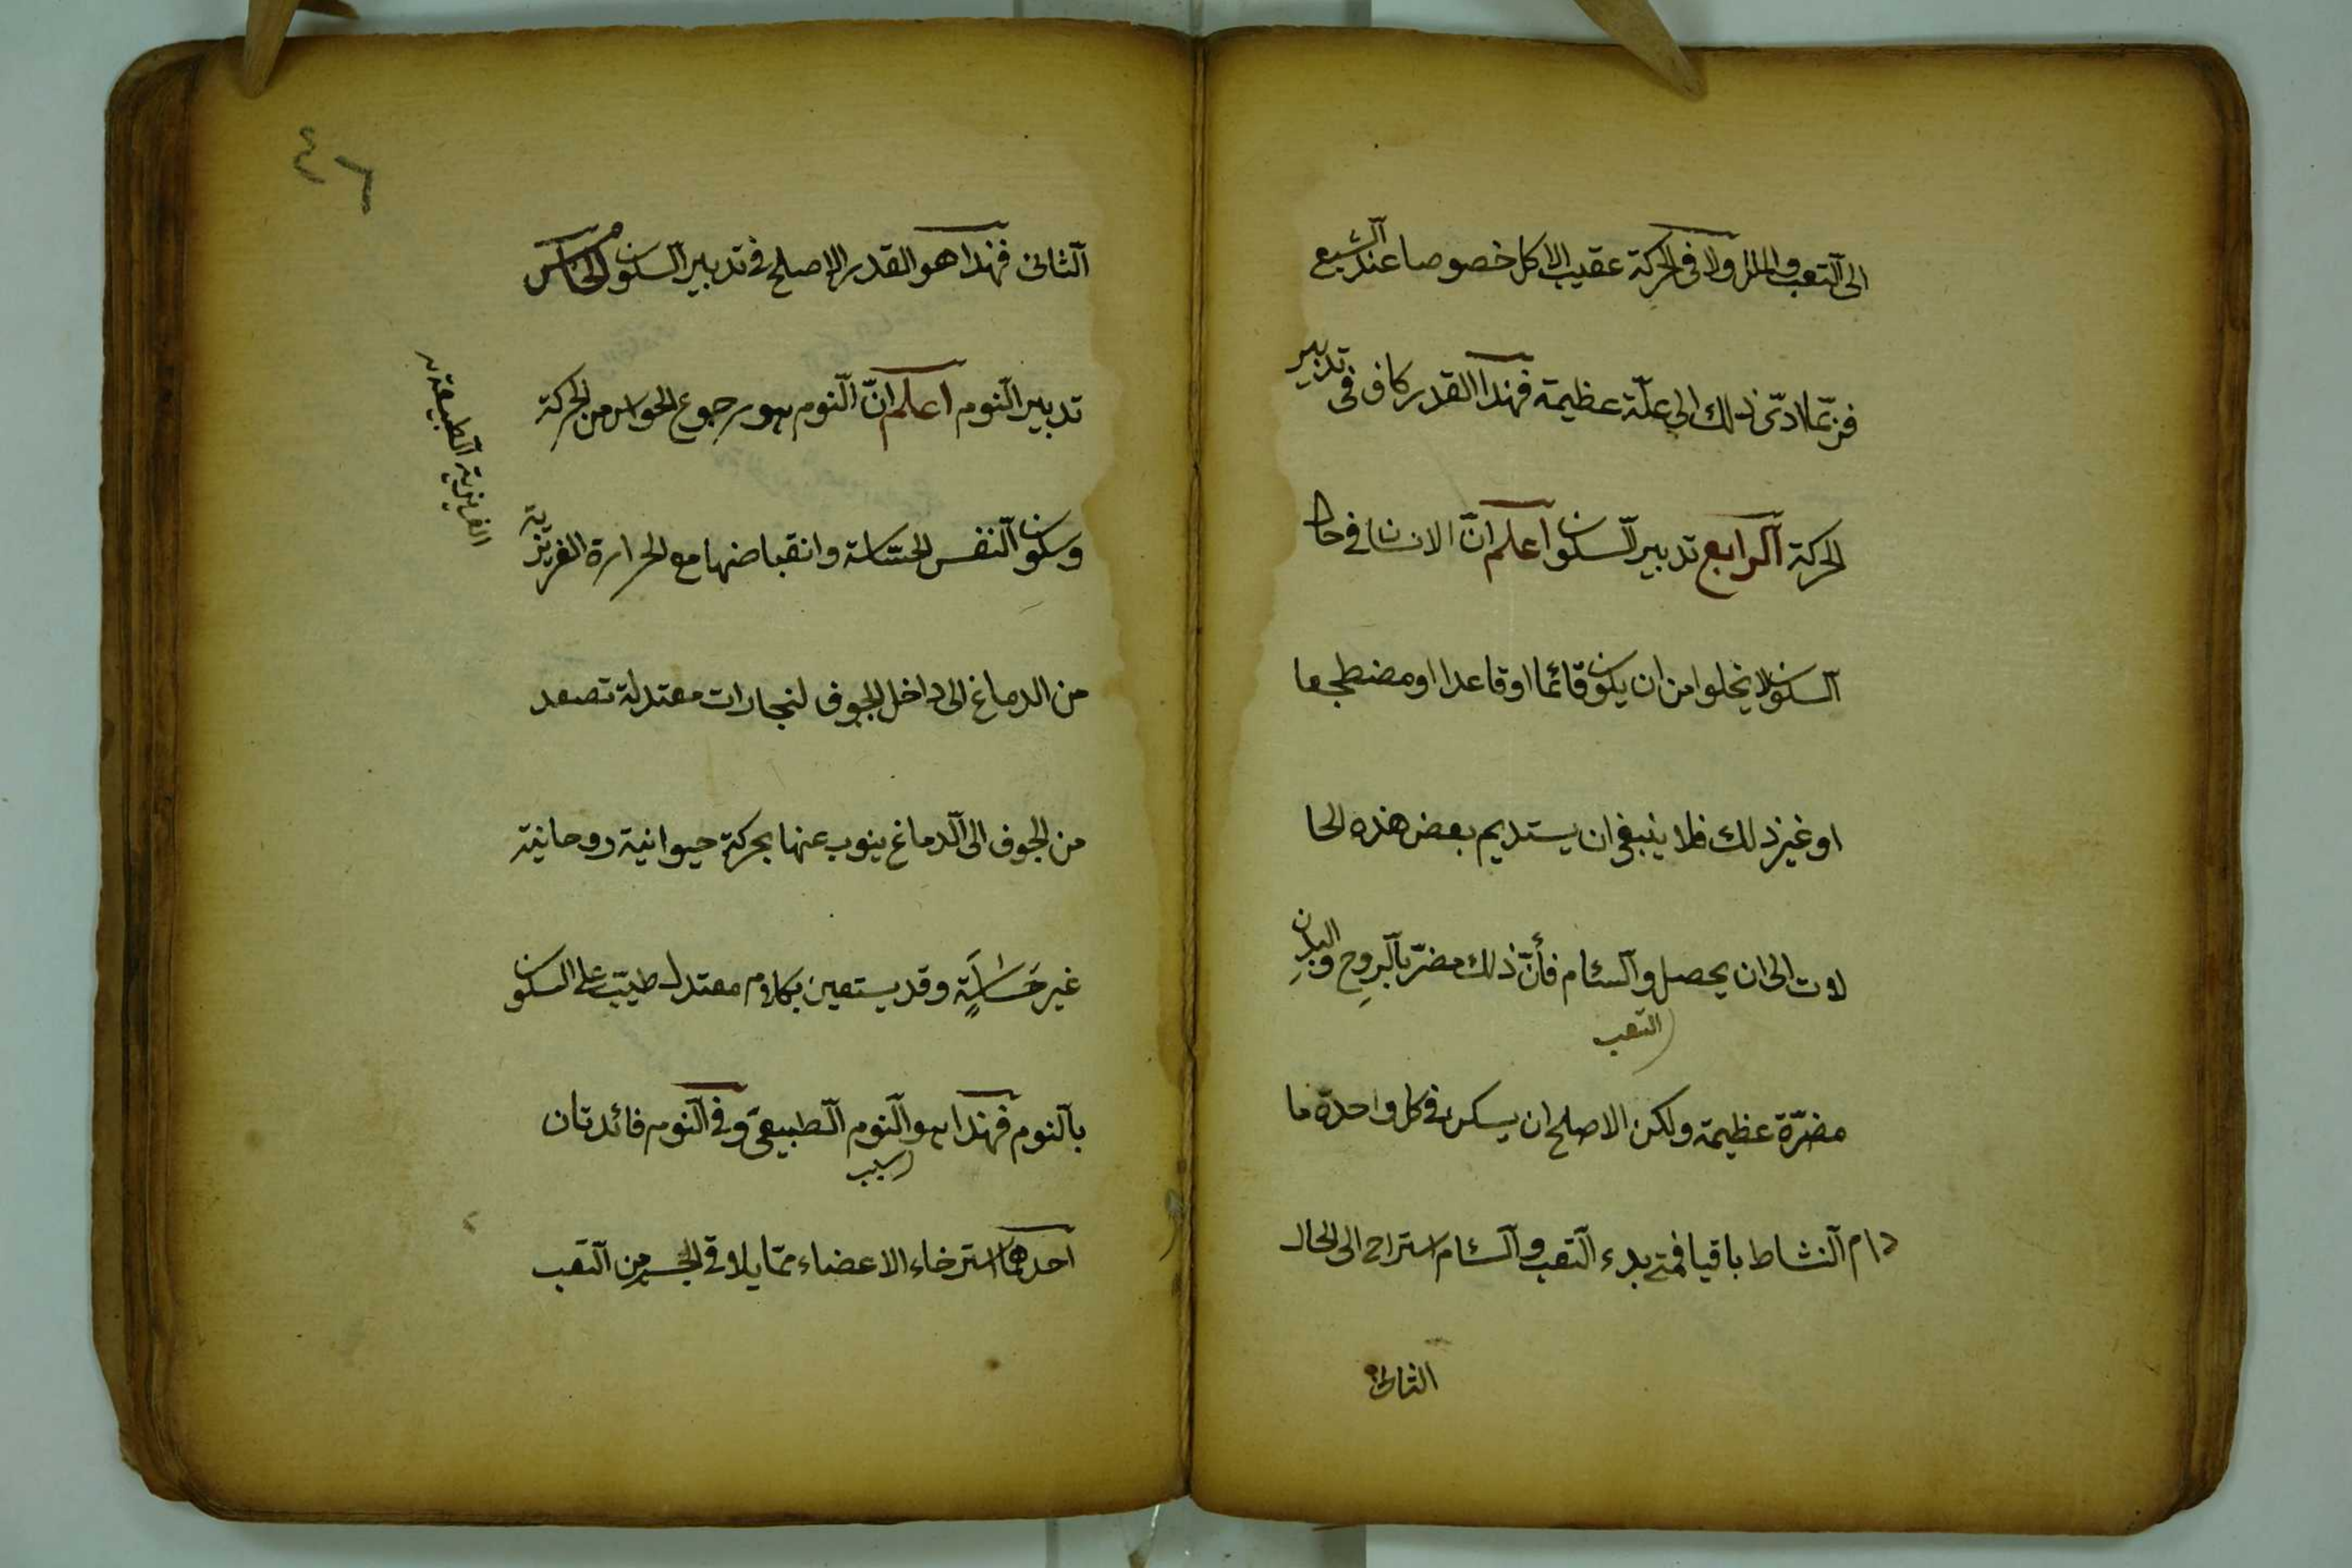 الى التعب والملل ولا فى الحركة عقيب الاكل خصوصا عند الشبع
فربّما ادّى ذلك الى علّة عظيمة فهذا القدر كاف فى تدبير
الحركة الرابع تدبير السكون اعلم انّ الانسان فى حال
السكون لا يخلوا من ان يكون قائما او قاعدا او مضطجعا
او غير ذلك فلا ينبغى ان يستديم بعض هذه الحا
لات الى ان يحصل والسئام فأنّ ذلك مضرّ بالروح والبدن
التعب
مضرّة عظيمة ولكن الاصلح ان يسكن فى كل واحدة ما
دام النشاط باقيا فمتى بدء التعب والسئام استراح الى الحال
الثانى
٤٦
الثانى فهذا هو القدر الاصلح فى تدبير السكون الخامس
تدبير النوم اعلم انّ النوم هو رجوع الحواس من الحركة
وسكون النفس الحسّاسة وانقباضها مع الحرارة الغريزية
الغريزية الطبيعة
من الدماغ الى داخل الجوف لنجارات معتدلة تصعد
من الجوف الى الدماغ ينوب عنها بحركة حيوانية روحانية
غير حَسّاسَةٍ وقد يستعين بكلام معتدل طيّب على السكون
بالنوم فهذا هو النوم الطبيعىّ وفى النوم فائدتان
سبب
احدهما استرخاء الاعضاء ممّا يلاقى الجسم من التعب